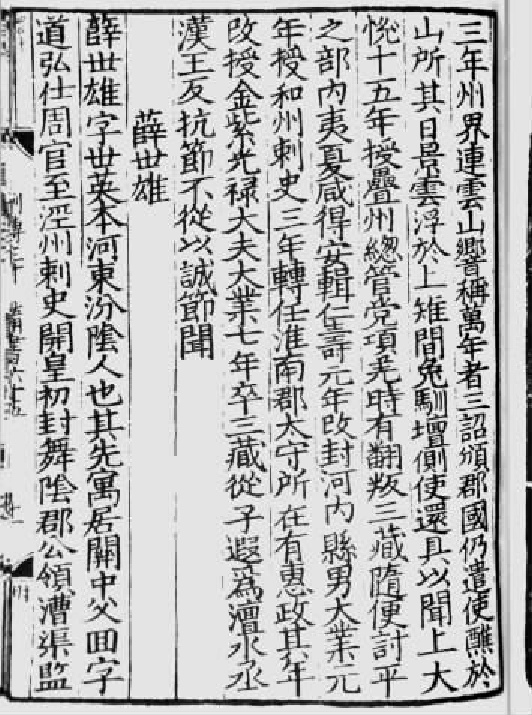 三年州界連雲山響稱萬年者三詔頒郡國仍遣使醮於
山所其日景雲浮於上雉間兔馴壇側使還具以聞上大
悅十五年授疊州緫管党項羌時有翻叛三藏隨便討平
之部內夷夏咸得安輯仁壽元年改封河內縣男大業元
年授和州刺史三年轉任淮南郡太守所在有惠政其年
改授金紫光祿大夫大業七年卒三藏從子遐爲澶水丞
漢王反抗節不從以誠節聞
薛世雄
薛世雄字世英本河東汾陰人也其先寓居關中父回字
道弘仕周官至涇州刺史開皇初封舞陰郡公領漕渠監